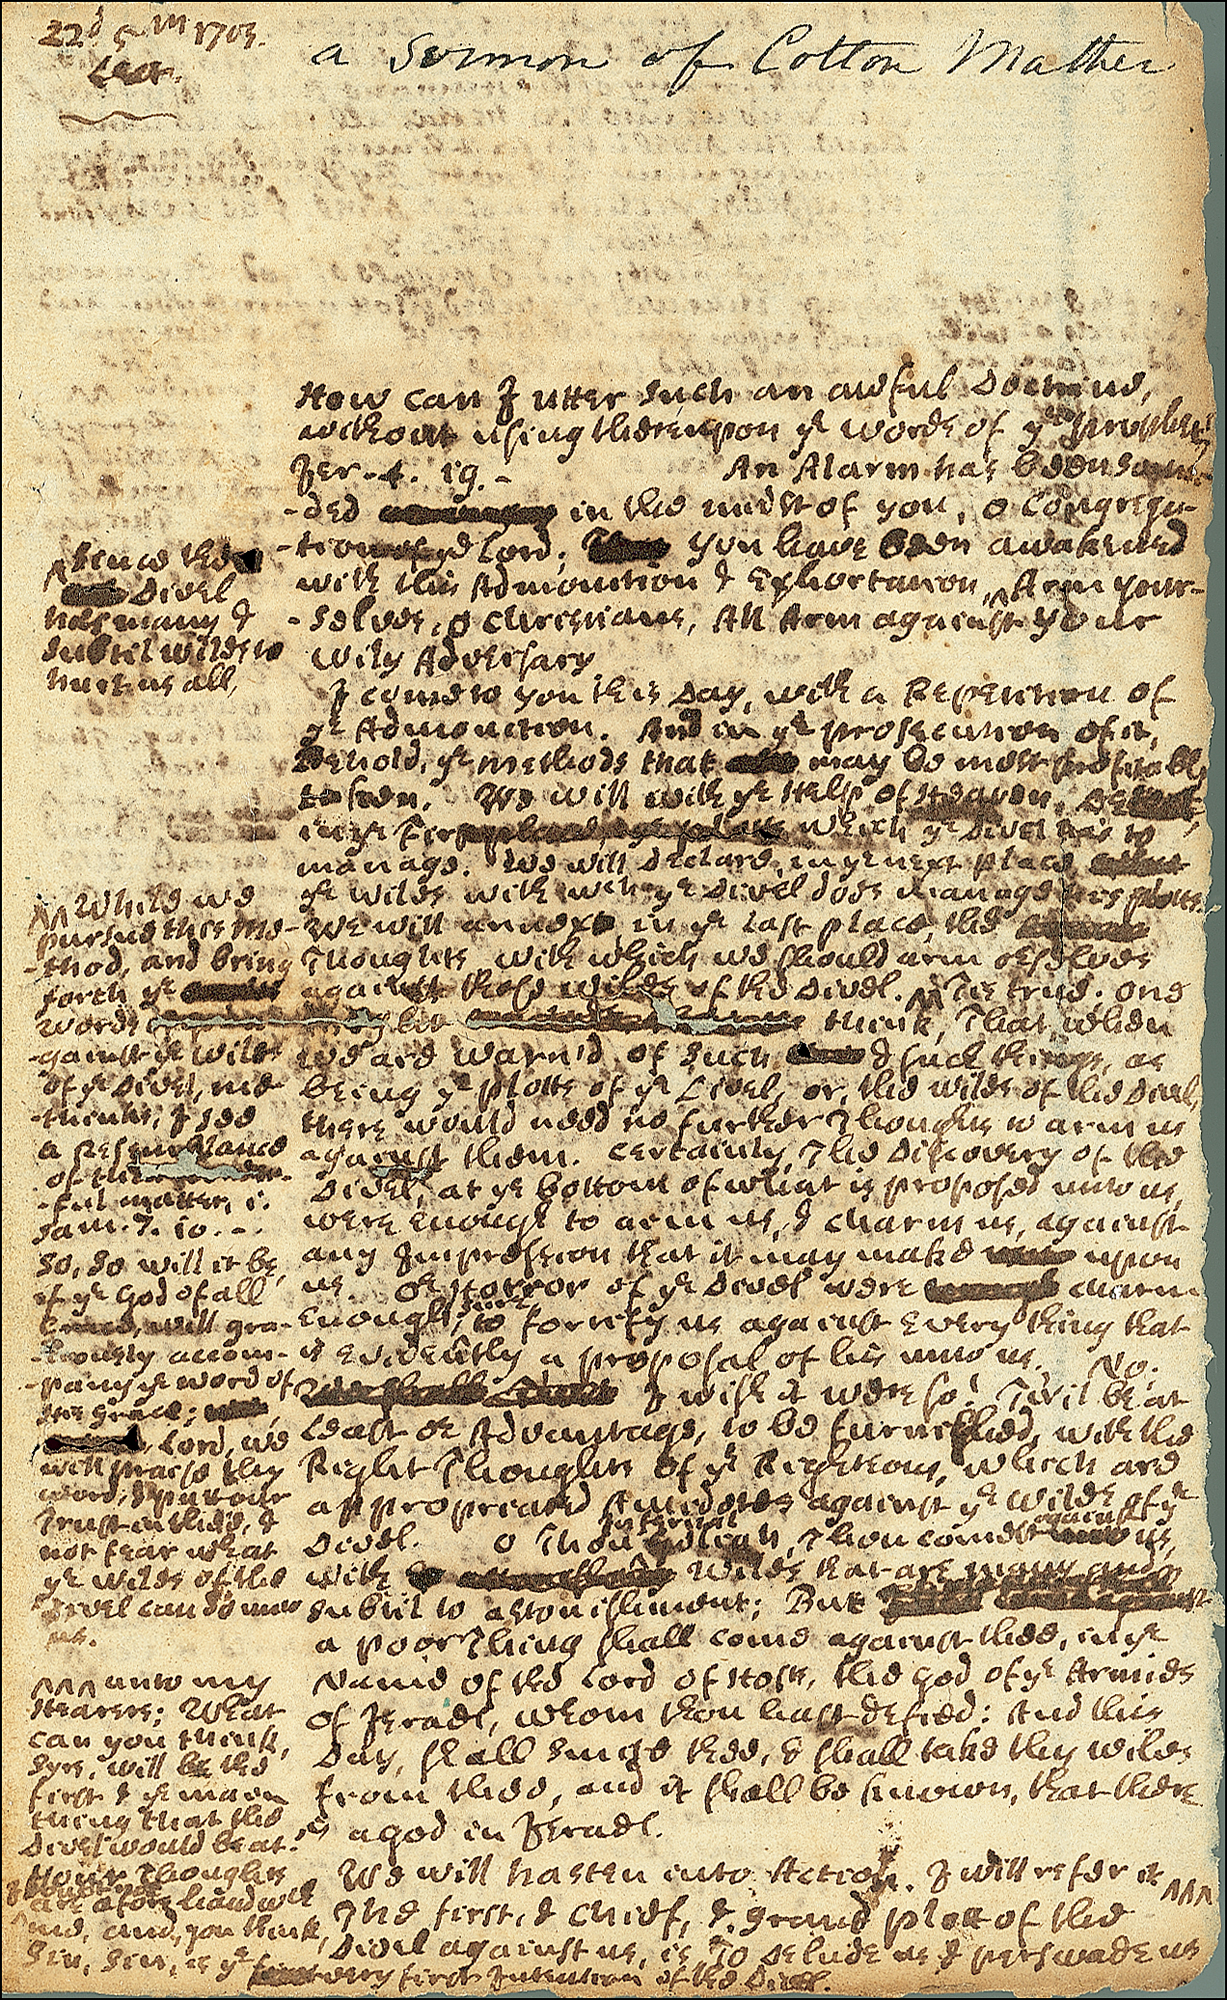 22d 5m 1703.
Lea.
a Sermon of Cotton Mather
How can I utter such an awful Doctrine,
without using thereupon ye words of ye Prophet,
Jer. 4. 19. - An Alarm has been soun-
-ded in the midst of you, o Congrega-
-tion of ye Lord; You have been awakened
with this Admonition & Exhortation, ^ Arm your-
-selves, o Christians, All Arm against your
Wily Adversary
I come to you this Day, with a Repetition of
ye Admonition. And in ye prosecution of it,
Behold, ye methods that may be most profitable
to be We will with ye Help of Heaven,
in ye First which ye Divel has to
manage. We will Declare, in ye next place
ye wiles with wch ye Divel does manage his plotts.
We will annex in ye last place, the
Thoughts with which we should arm orselves
against those wiles of the Divel. ^^ Tis true. One
might think, That when
we are warn'd of such & such things, as
being ye plotts of ye Divel, or, the wiles of the Divel,
there would need no further Thoughts to arm us
against them. Certainly, The Discovery of the
Divel, at ye bottom of what is proposed unto us,
were enough to arm us, & charm us, against
any Impression that it may make upon
us or Horror of ye Divel were charm
enough, to fortify us against every thing that
is evidently a proposal of his unto us. No.
I wish it were so! Twil be at
least or Advantage, to be furnished, with the
Right Thoughts of ye Righteous, which are
appropriated Antidotes against ye wiles of ye
Divel. O Thou Infernal Goliah, Thou comest against us,
with Wiles that are many and
subtil to astonishment; But
a poor Thing shall come against thee, in ye
Name of the Lord of Hosts, the God of ye Armies
of Israel, whom thou hast defied: And this
Day, shall smite thee, & shall take thy wiles
from thee, and it shall be known, that there
is a God in Israel.
We will hasten into Action. I will refer it ^^^
The first, & chief, & grand plott of the
Divel against us, is To Delude us & perswade us
^ Since the
Divel
has many &
subtil wiles to
hurt us all,
^^ While we
pursue this me-
-thod, and bring
forth ye
words
-gainst ye wiles
of ye Divel, me-
-thinks, I see
a Resemblance
of the
-ful matter, 1.
Sam. 7. 10. -
So, so will it be,
if ye God of all
Grace, will gra-
-ciously accom-
-pany ye word of
His grace;
Lord, we
will praise thy
word; & put our
Trust in thee, &
not fear what
ye wiles of the
Divel can do unto
us.
^^^ unto my
Hearers; What
can you think,
Syrs, will be the
first & ye main
thing that the
Divel would be at?
Your Thoughts
are aforehand with
me, and, you think,
Sin, Sin, is ye very first Intention of the Divel.